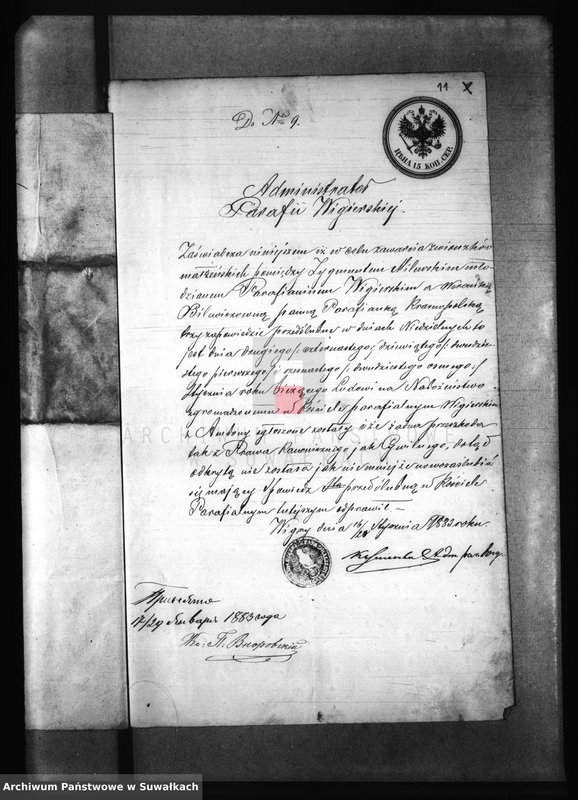 11
Do Nru 9.
ЦѢНА 15 КОП. СЕР.
Administrator
Parafii Wigierskiej.
Zaświadcza niniejszem iż w celu zawarcia związków
małżeńskich pomiędzy Zygmuntem Milewskim mło-
dzianem Parafianinem Wigierskim a
panną Parafianką Krasnopolską
trzy zapowiedzie przedślubne w dniach Niedzielnych to
jest dnia drugiego/czternastego; dziewiątego/dwudzie-
stego pierwszego/; i szesnastego/dwudziestego ósmego/
Stycznia roku bieżącego Ludowi na Nabożeństwo
zgromadzonemu w Kościele parafialnym Wigierskim
z Ambony ogłoszone zostały i że żadna przeszkoda
tak z Prawa Kanonicznego jak Cywilnego, dotąd
odkrytą nie została jak niemniej że nowozaślubić
się mający Spowiedź przedślubną w Kościele
Parafialnym tutejszym odprawił —
Wigry dnia 16/28 Stycznia 1883 roku.
Adm par
17/29 Января 1883 года
ARCHIWUM PAŃSTWOWE
Archiwum Państwowe w Suwałkach